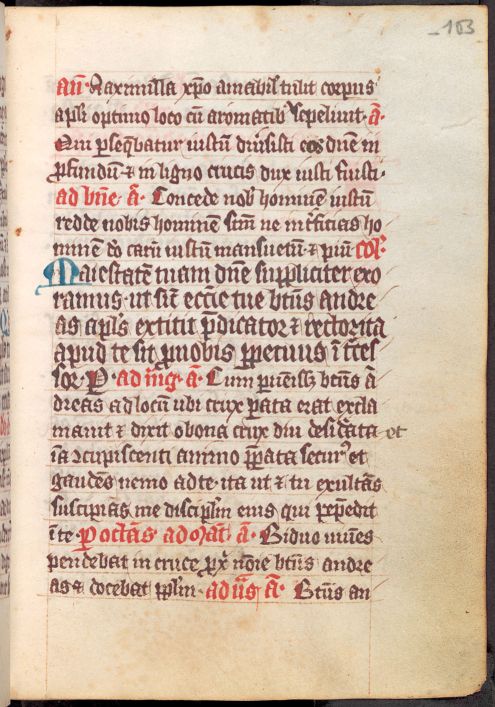 103
añ. Maximilla xp̄o amabil' tulit corpus
apl̄i optimo loco cū aromatib' sepeliuit. a̅.
Qui pseq̄batur iustū dimsisti eos dn̄e in
pfundū ⁊ in ligno crucis dux iusti fuisti.
ad bn̄e. a̅. Concede nob' hominē iustū
redde nobis hominē sc̄m ne īt̄ficias ho
minē do carū iustū mansuetū ⁊ piū col'.
Maiestatē tuam dn̄e suppliciter exo
ramus. ut sic̄ ecc̄ie tue bt̄us andre
as apl's extitit p̄dicator ⁊ rector ita
apud te sit p nobis ppetuus īt̄ces
sor. P. ad mg̅. a̅. Cum puenissꝫ bt̄us ā
dreas ad locū ubi crux pata erat excla
mauit ⁊ dixit o bona crux diu desidata et
ia ꝯcupiscenti animo ppata secur' et
gaudēs uenio ad te. ita ut ⁊ tu exultās
suscipias me discipl'm eius qui pepēdit
ī te. P octās ad mat̄. a̅. Biduo uiuēs
pendebat in cruce p xp̄i noīe bt̄us andre
as ⁊ docebat ppl'm. ad us̄. a̅. Bt̄us an